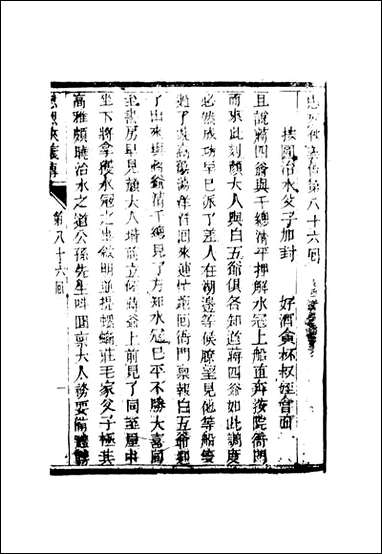 忠烈俠義傳第八十六回
按圖治水父子加封 好酒貪杯叔姪會面
且說蔣四爺與千總清平押解水冠上船直奔按院衙門
而來此刻顏大人與白五爺俱各知道蔣四爺如此調度
必然成功早已派了差人在湖邊等候瞭望見他等船隻
過了漩渦蕩蕩洋洋回來連忙跑回衙門稟報白五爺迎
了出來與蔣爺清千總見了方知水冠已平不勝大喜同
至書房早見顏大人堦前立候蔣爺上前見了同至屋中
坐下將拿獲水冠之事敘明並提螺螄莊毛家父子極其
高雅頗曉治水之道公孫先生叫回稟大人務要備禮聘
忠烈俠義傳 第八十六回 一